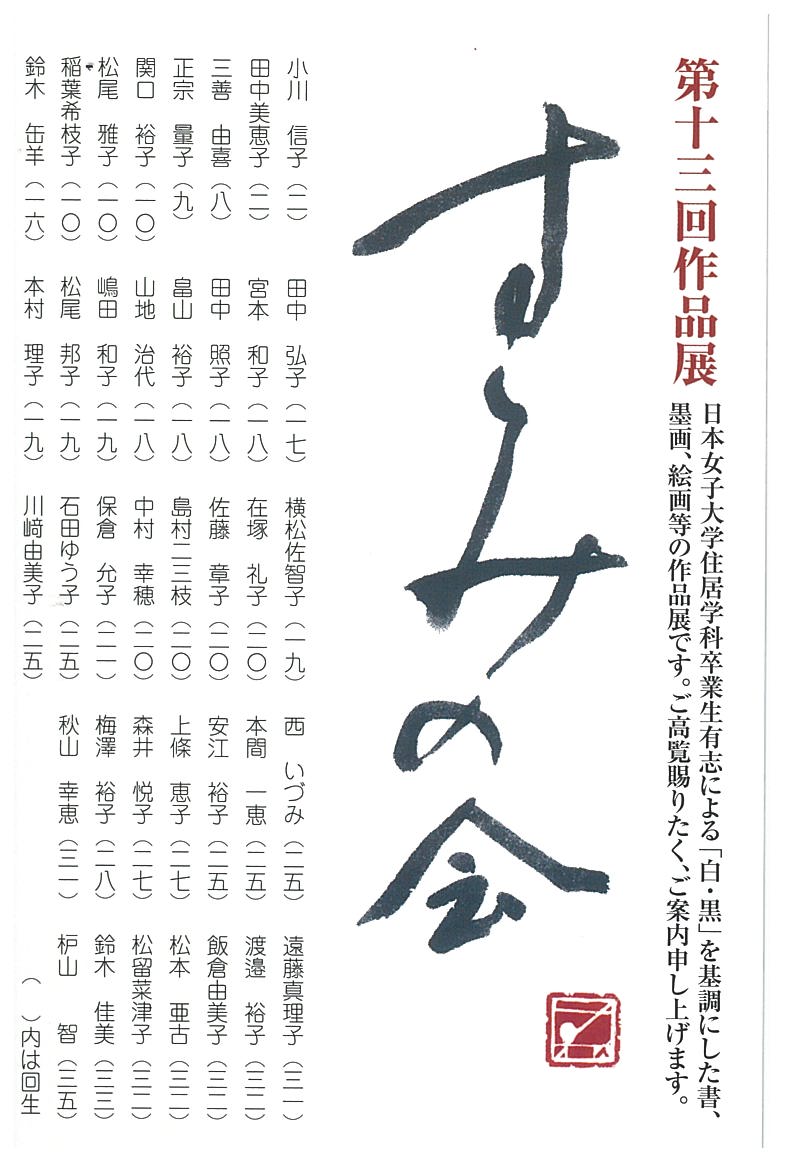 第十三回作品展
日本女子大学住居学科卒業生有志による「白・黒」を基調にした書、
墨画、絵画等の作品展です。ご高覧賜りたく、ご案内申し上げます。
すみの会
小川 信子（二）
田中美恵子（二）
三善 由喜（八）
正宗 量子（九）
関口 裕子（一〇）
松尾 雅子（一〇）
稲葉希枝子（一〇）
鈴木 缶羊（一六）
田中 弘子（一七）
宮本 和子（一八）
田中 照子（一八）
畠山 裕子（一八）
山地 治代（一八）
嶋田 和子（一九）
松尾 邦子（一九）
本村 理子（一九）
横松佐智子（一九）
在塚 礼子（二〇）
佐藤 章子（二〇）
島村二三枝（二〇）
中村 幸穂（二〇）
保倉 允子（二一）
石田ゆう子（二五）
川﨑由美子（二五）
西 いづみ（二五）
本間 一恵（二五）
安江 裕子（二五）
上條 恵子（二七）
森井 悦子（二七）
梅澤 裕子（二八）
秋山 幸恵（三一）
遠藤真理子（三一）
渡邉 裕子（三二）
飯倉由美子（三二）
松本 亜古（三二）
松留菜津子（三二）
鈴木 佳美（三三）
枦山 智（三五）
（ ）内は回生